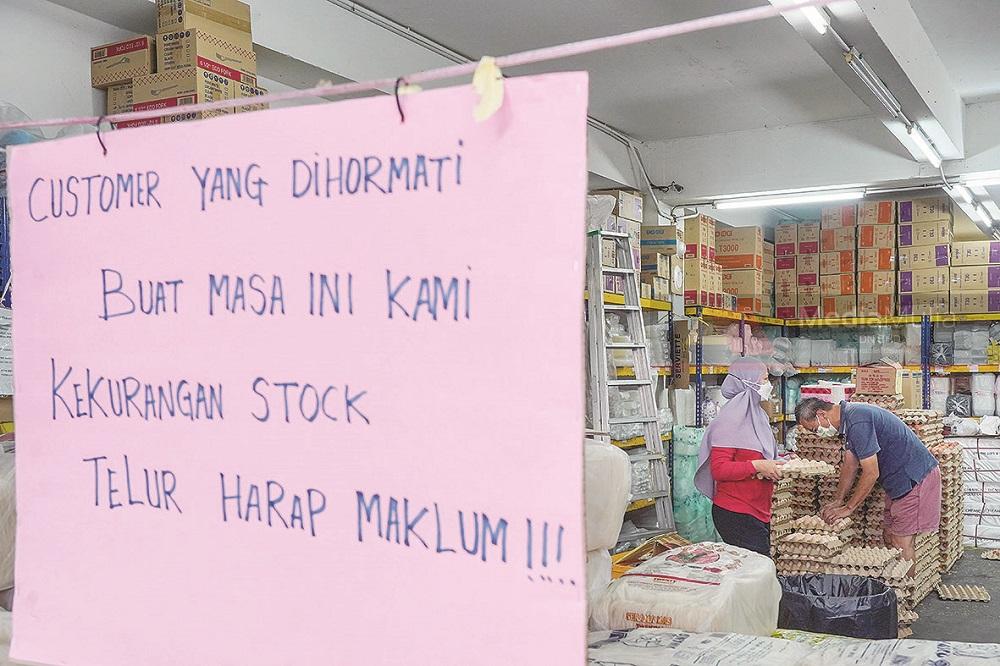 CUSTOMER YANG DIHORMATI
BUAT MASA INI KAMI
KEKURANGAN STOCK
TELUR HARAP MAKLUM!!!
T3000
SERVIETTE